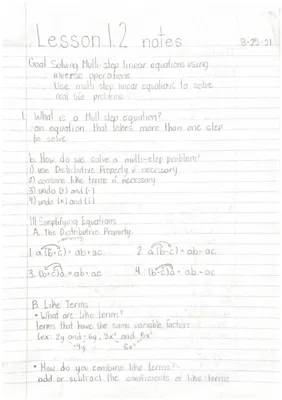 Lesson 1.2 notes 8-25-21
Goal Solving Multi-step linear equations using
inverse operations
Use multi step linear equations to solve
real life problems
I. What is a Multi step equation?
an equation that takes more than one step
to solve
b. How do we solve a multi-step problem?
1) use Distributive Property if necessary
2) combine like terms if necessary
3) undo (+) and (-)
4) undo (×) and (÷)
III Simplifying Equations
A. The Distributive Property
1. a(b+c) = ab+ac 2. a(b-c) = ab-ac
3. (b+c)a = ab+ac 4. (b-c)a = ab-ac
B. Like Terms
• What are like terms?
terms that have the same variable factors
(ex: 2y and -6y, 3x² and 5x²
-4y 8x²
• How do you combine like terms?
add or subtract the coefficients of like terms